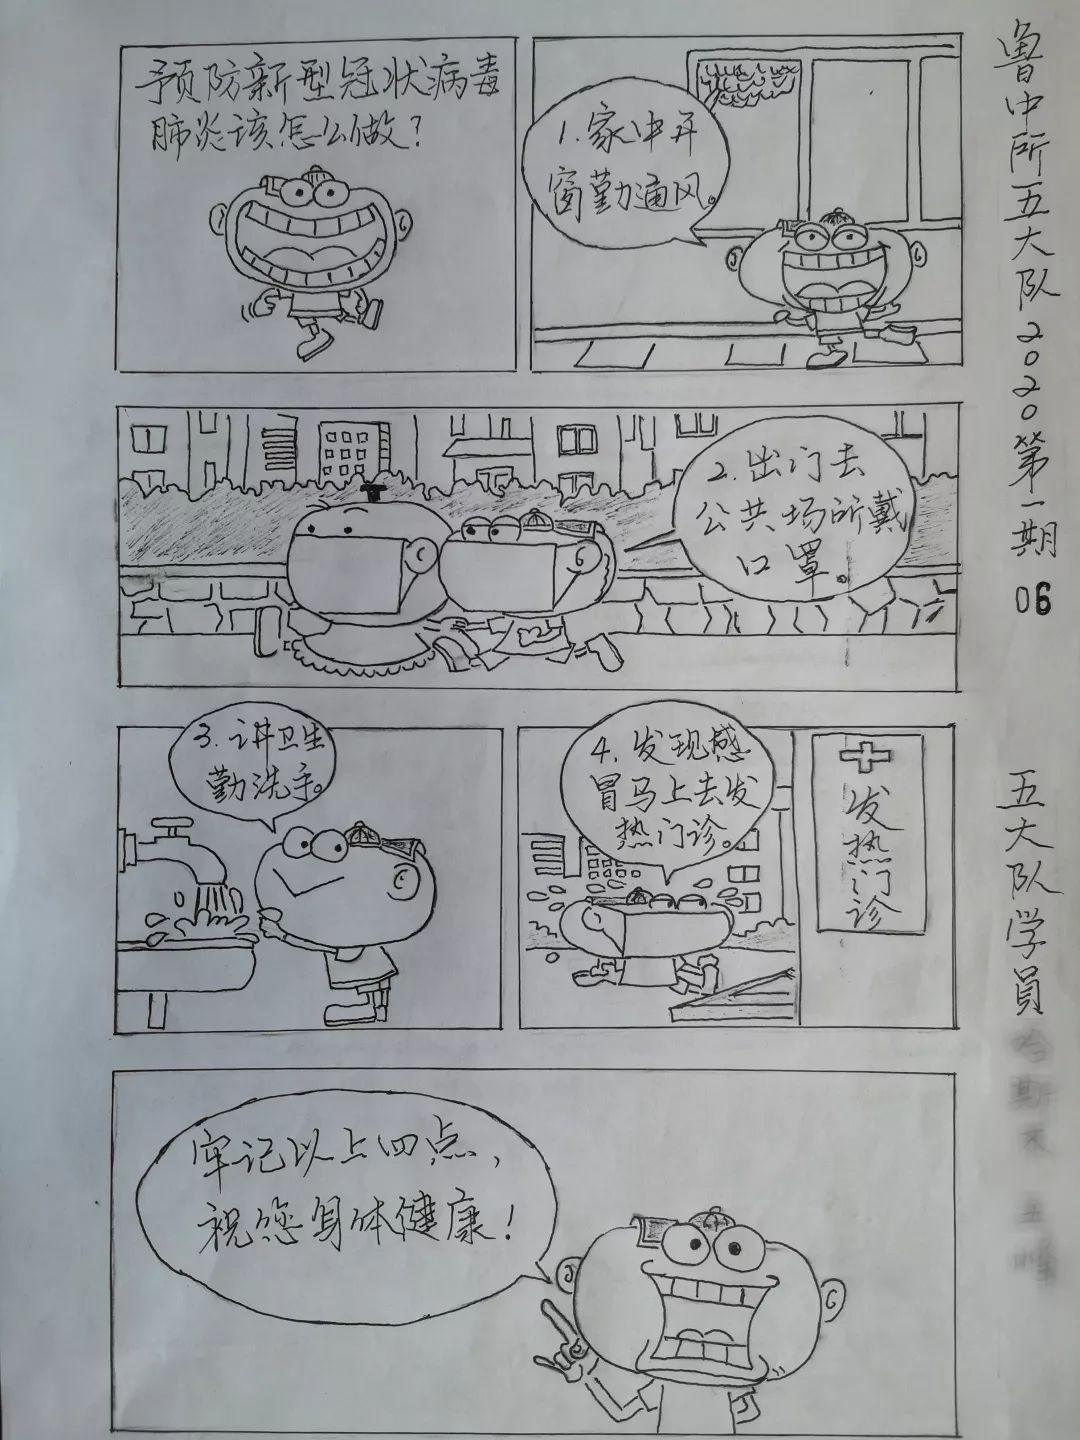 预防新型冠状病毒
肺炎该怎么做?
1.家中开
窗勤通风。
2.出门去
公共场所戴
口罩。
3.讲卫生
勤洗手。
4.发现感
冒马上去发
热门诊。
发热门诊
牢记以上四点,
祝您身体健康!
鲁中所五大队2020第一期
06
五大队学員